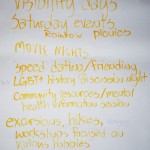 Visibility days
Saturday events
Rainbow picnics
Movie nights
speed dating/friending
LGBT+ history/discussion night
community resources/mental
health information session
excursions, hikes,
workshops focused on
various hobbies